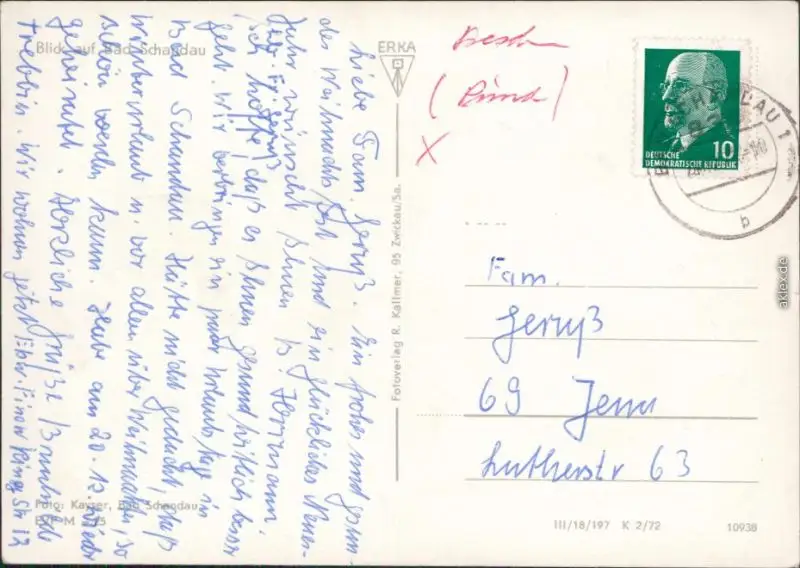 Blick auf Bad Schandau
ERKA
Liebe Fam. Geruß. Ein frohes und gesun-
des Weihnachtsfest und ein glückliches Neues
Jahr wünscht Ihnen B. Herrmann.
Ich hoffe, daß es Ihnen gesundheitlich besser
geht. Wir verbringen ein paar Urlaubstage in
Bad Schandau. Hätte nicht gedacht, daß
Winterurlaub u. vor allem über Weihnachten, so
schön werden kann. Habe am 20.12. wieder
geheiratet. Herzliche Grüße
Trebbin. Wir wohnen jetzt
Foto: Kayser, Bad Schandau
Fotoverlag R. Kallmer, 95 Zwickau/Sa.
X
10
DEUTSCHE
DEMOKRATISCHE REPUBLIK
b
Fam.
Geruß
69 Jena
Lutherstr 63
III/18/197 K 2/72
10938
aklex.de